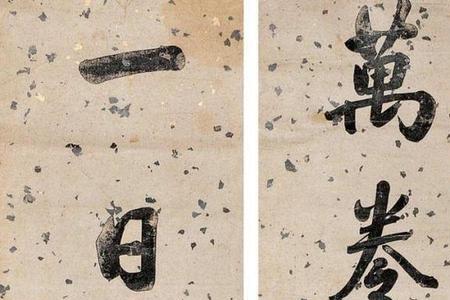 萬卷
一日